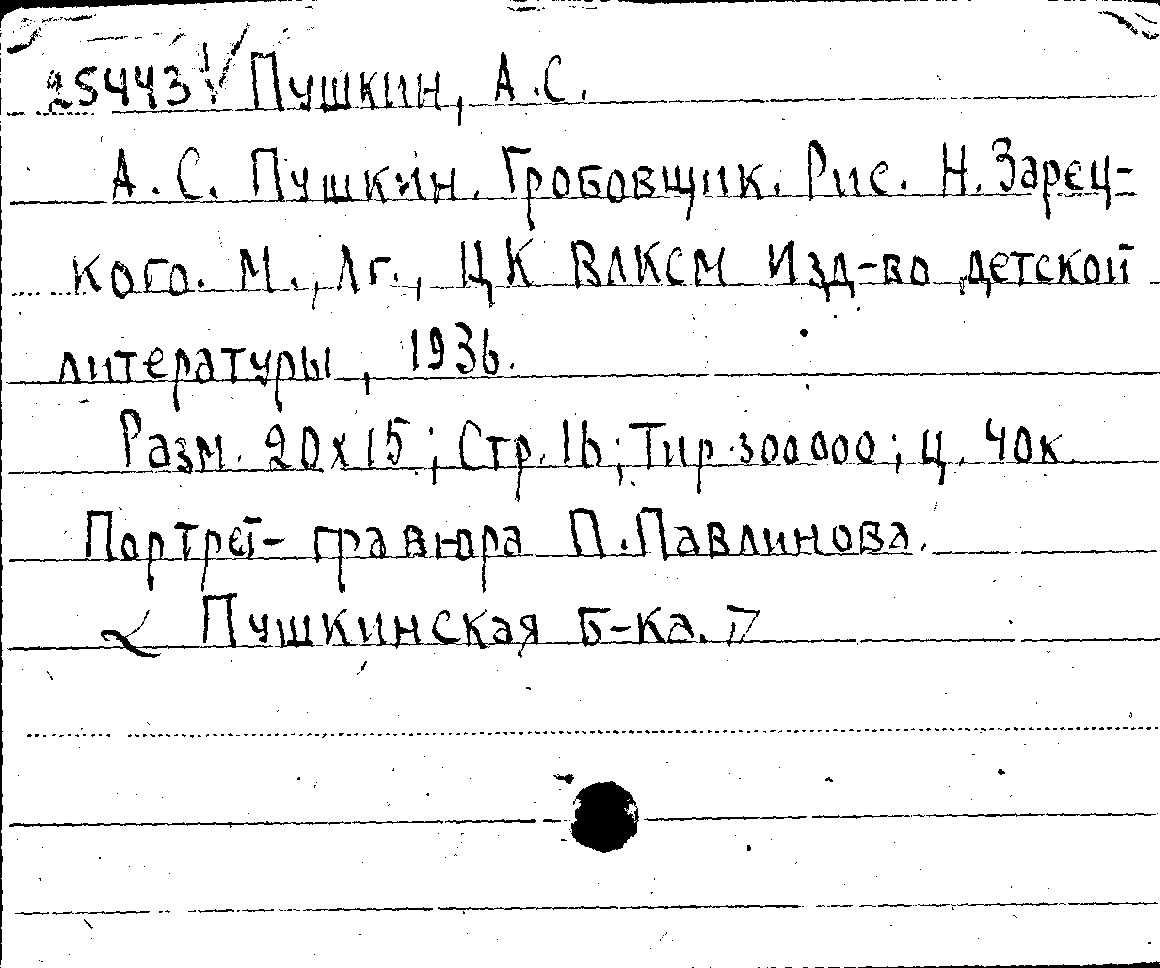 25443 Пушкин, А.С.
А.С. Пушкин. Гробовщик. Рис. Н. Зарец-
кого. М., Лг., ЦК ВЛКСМ Изд-во детской
литературы, 1936.
Разм. 20х15; Стр. 16; Тир. 300000; Ц. 40к
Портрет-гравюра П. Павлинова.
Пушкинская б-ка.